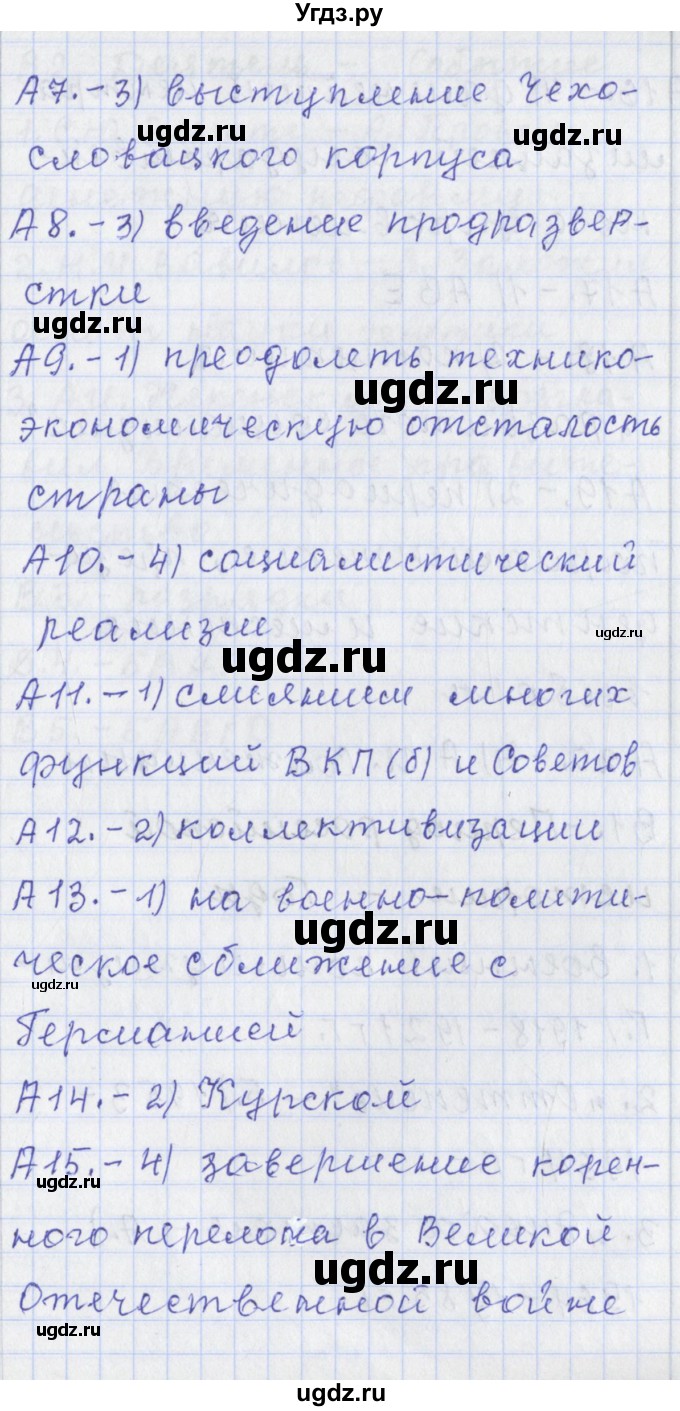 Угдз.ру
А7.-3) выступление Чехо-
ugdz.ru ugdz.ru
словацкого корпуса
А8.-3) введение продразвер-
стки
ugdz.ru
А9.-1) преодолеть технико-
ugdz.ru
экономическую отсталость
страны
А10.-4) социалистический
реализм
ugdz.ru
ugdz.ru
А11.-1) слиянием многих
функций ВКП(б) и Советов
А12.-2) коллективизации
А13.-1) на военно-полити-
ugdz.ru
ческое сближение с
ugdz.ru
Германией
А14.-2) Курской
А15.-4) завершение корен-
ugdz.ru
ного перелома в Великой
ugdz.ru
Отечественной войне
ugdz.ru
ugdz.ru